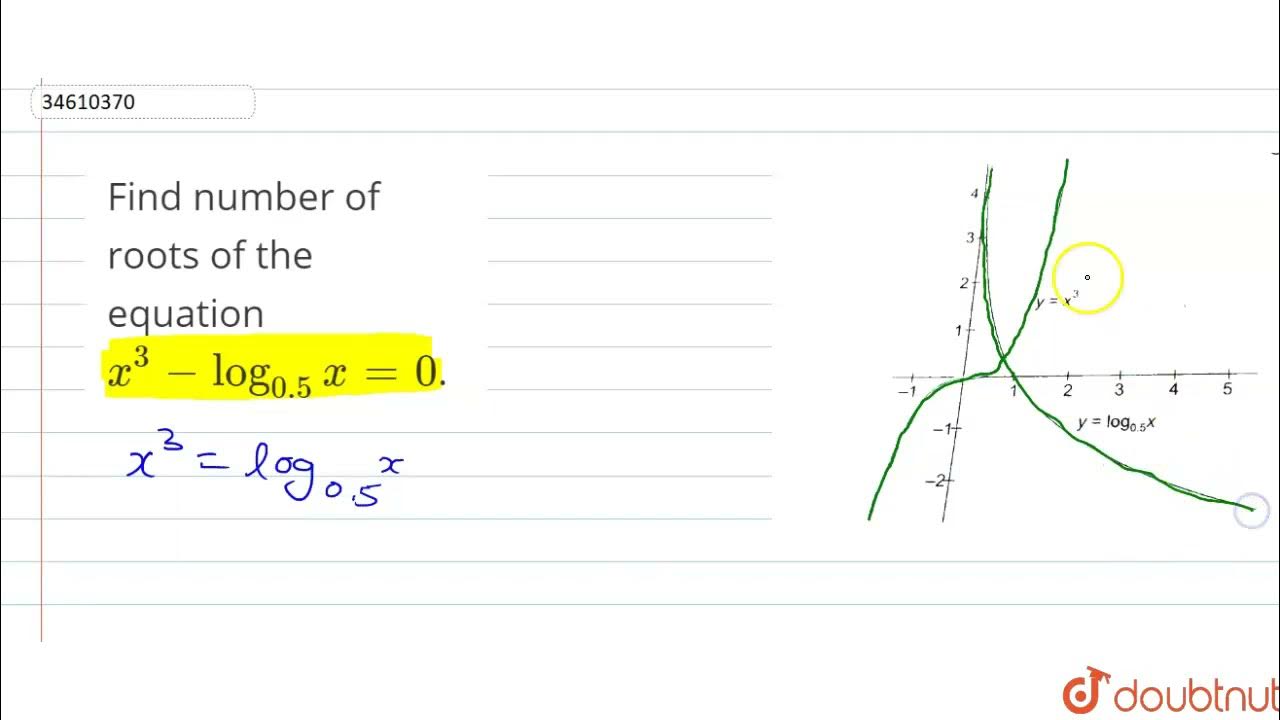 34610370
Find number of
roots of the
equation
x³ − log₀.₅ x = 0.
x³ = log₀.₅ x
4
3
2
1
−1
−2
−1 1 2 3 4 5
y = x³
y = log₀.₅x
doubtnut